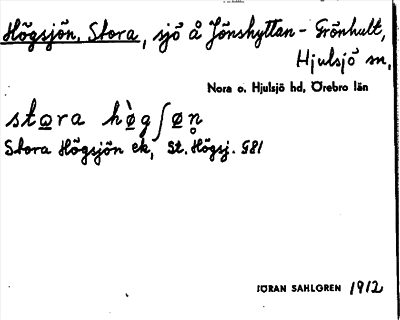 Högsjön, Stora, sjö å Jönshyttan - Grönhult,
Hjulsjö sn,
Nora o. Hjulsjö hd, Örebro län
stora hø̀gʃøn̥
Stora Högsjön ek, St. Högsj. G81
JÖRAN SAHLGREN 1912